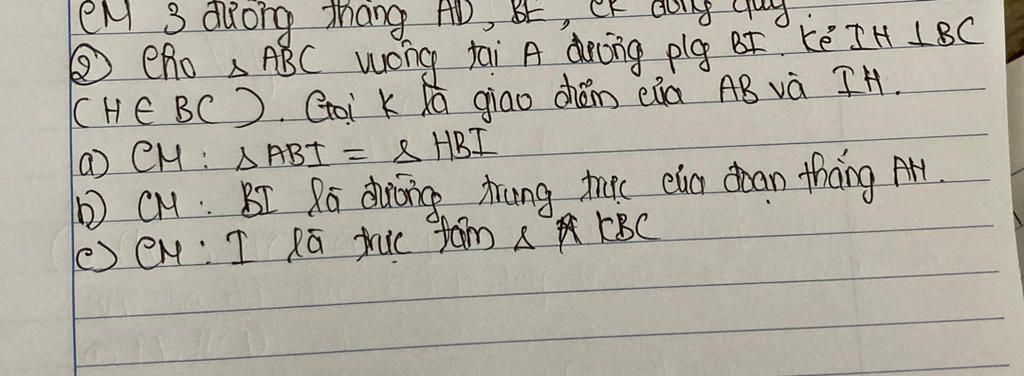 CM 3 đường thẳng AD, BE, CK đồng quy.
② Cho △ ABC vuông tại A đường p/g BI. Kẻ IH ⊥ BC
(H ∈ BC). Gọi K là giao điểm của AB và IH.
a) CM: △ ABI = △ HBI
b) CM: BI là đường trung trực của đoạn thẳng AH.
c) CM: I là trực tâm △ KBC